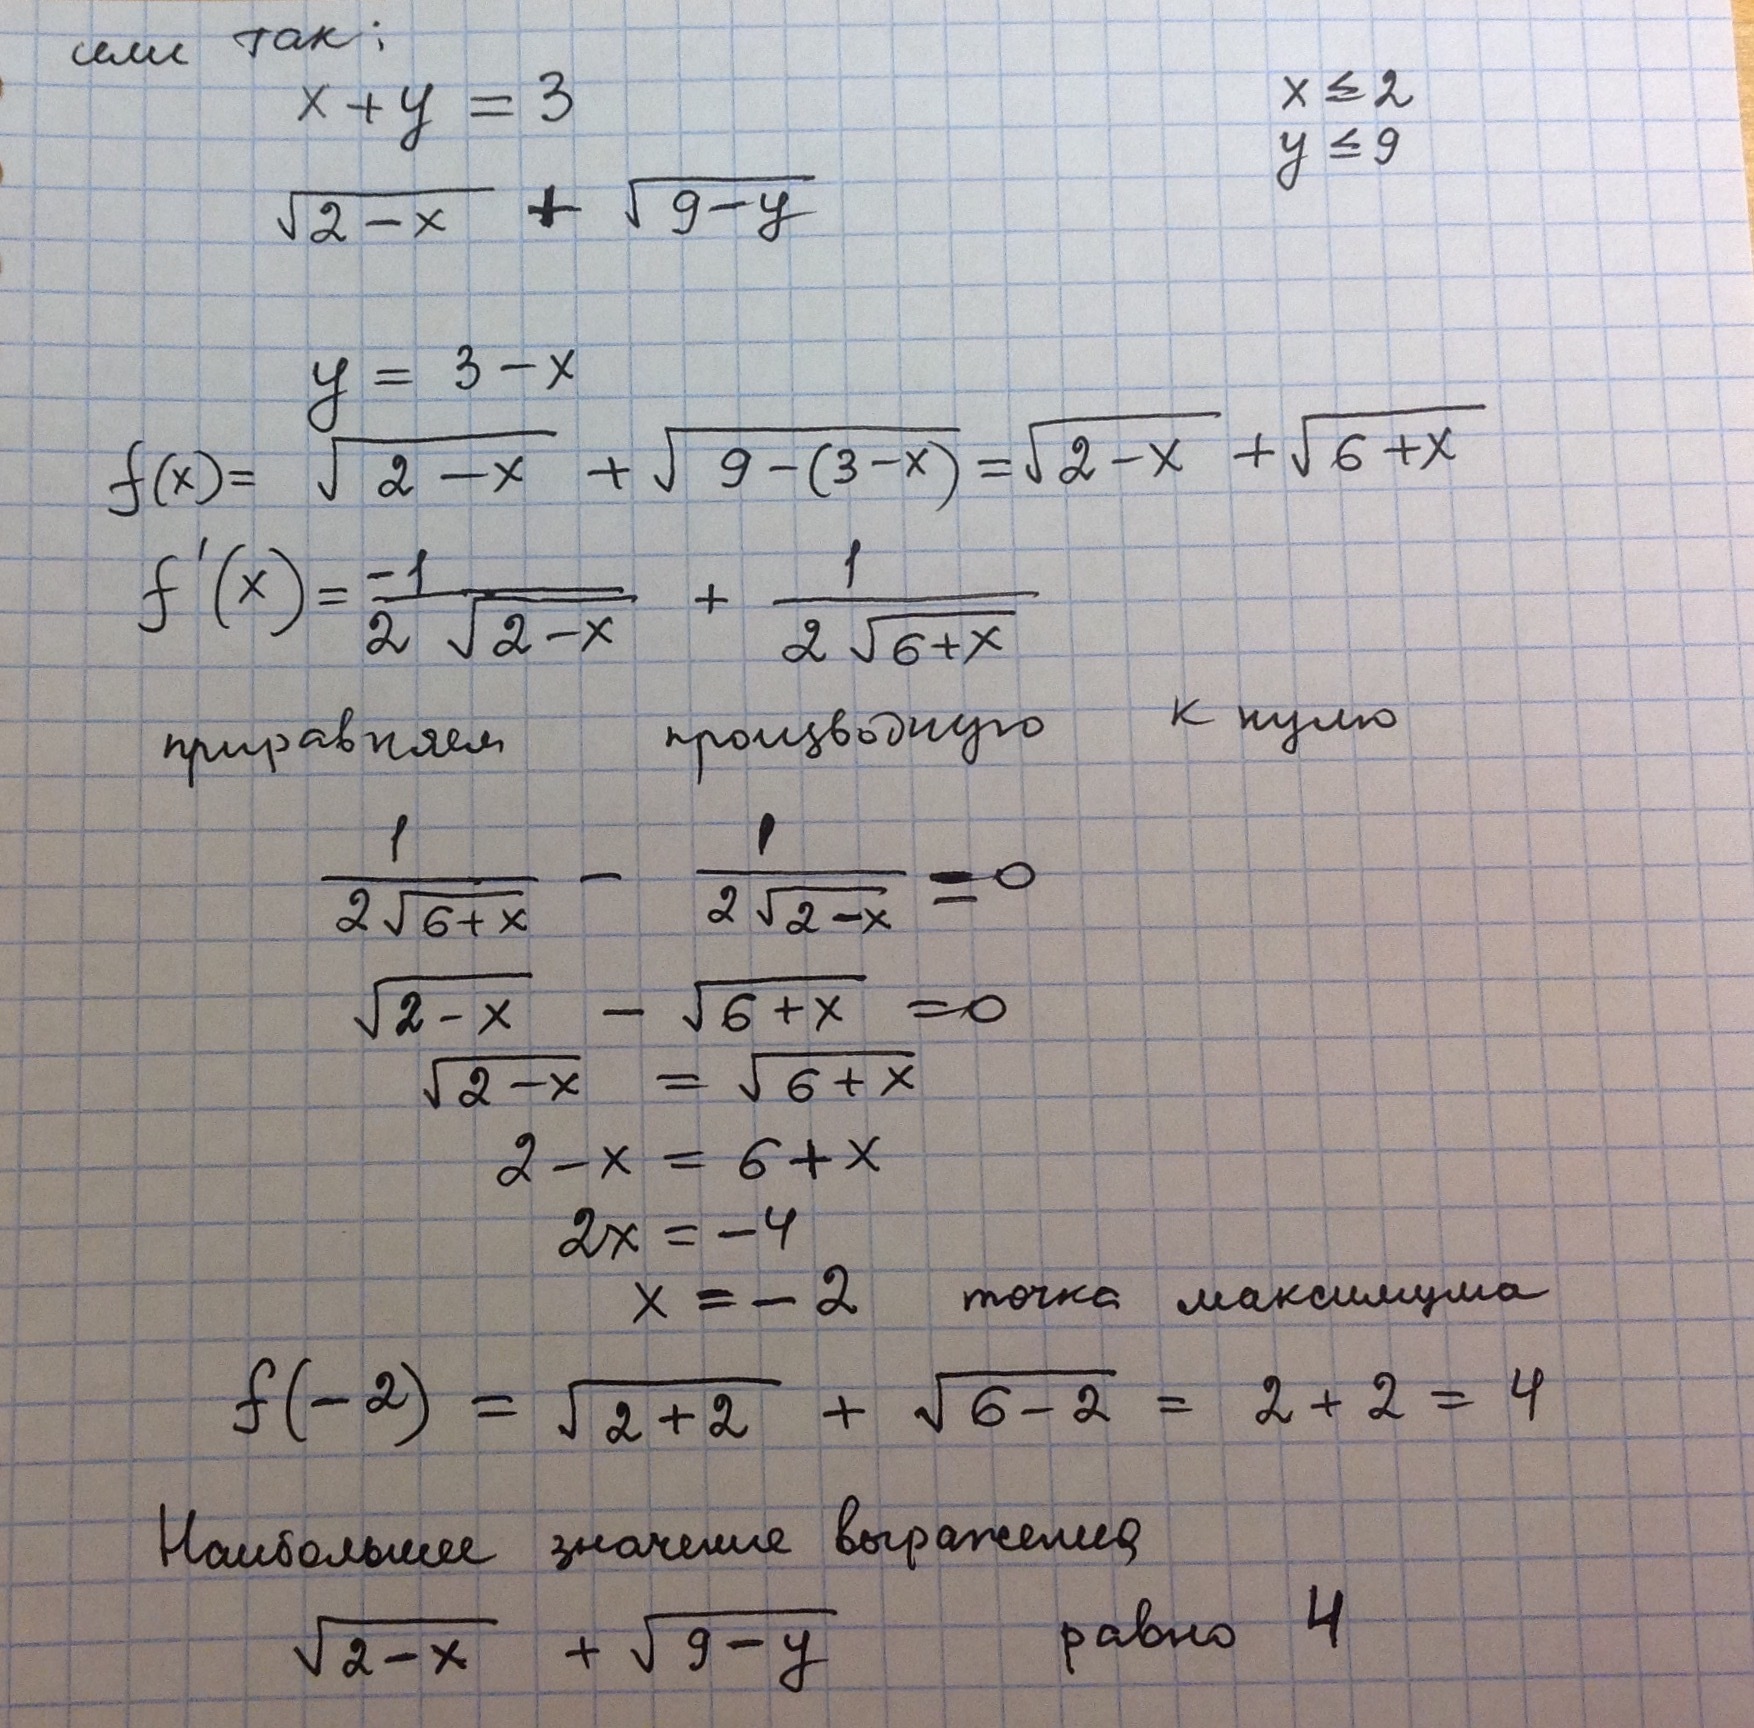 или так:
x + y = 3
x ≤ 2
y ≤ 9
√(2-x) + √(9-y)
y = 3 - x
f(x) = √(2-x) + √(9-(3-x)) = √(2-x) + √(6+x)
f'(x) = -1/(2√(2-x)) + 1/(2√(6+x))
приравняем производную к нулю
1/(2√(6+x)) - 1/(2√(2-x)) = 0
√(2-x) - √(6+x) = 0
√(2-x) = √(6+x)
2 - x = 6 + x
2x = -4
x = -2 точка максимума
f(-2) = √(2+2) + √(6-2) = 2 + 2 = 4
Наибольшее значение выражения
√(2-x) + √(9-y) равно 4